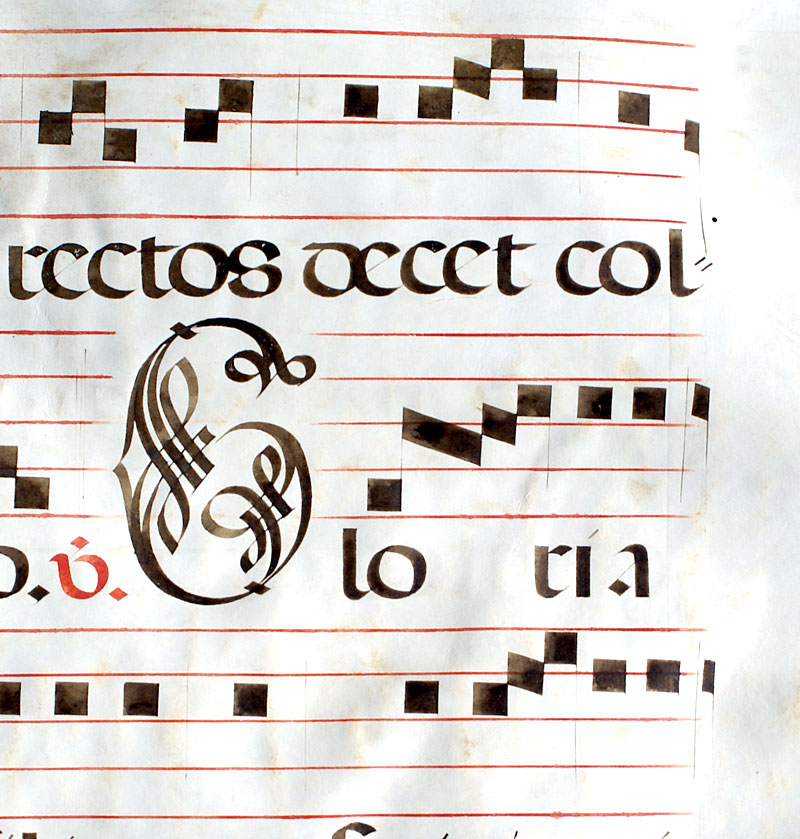 rectos decet col
o. ℣. Gloria